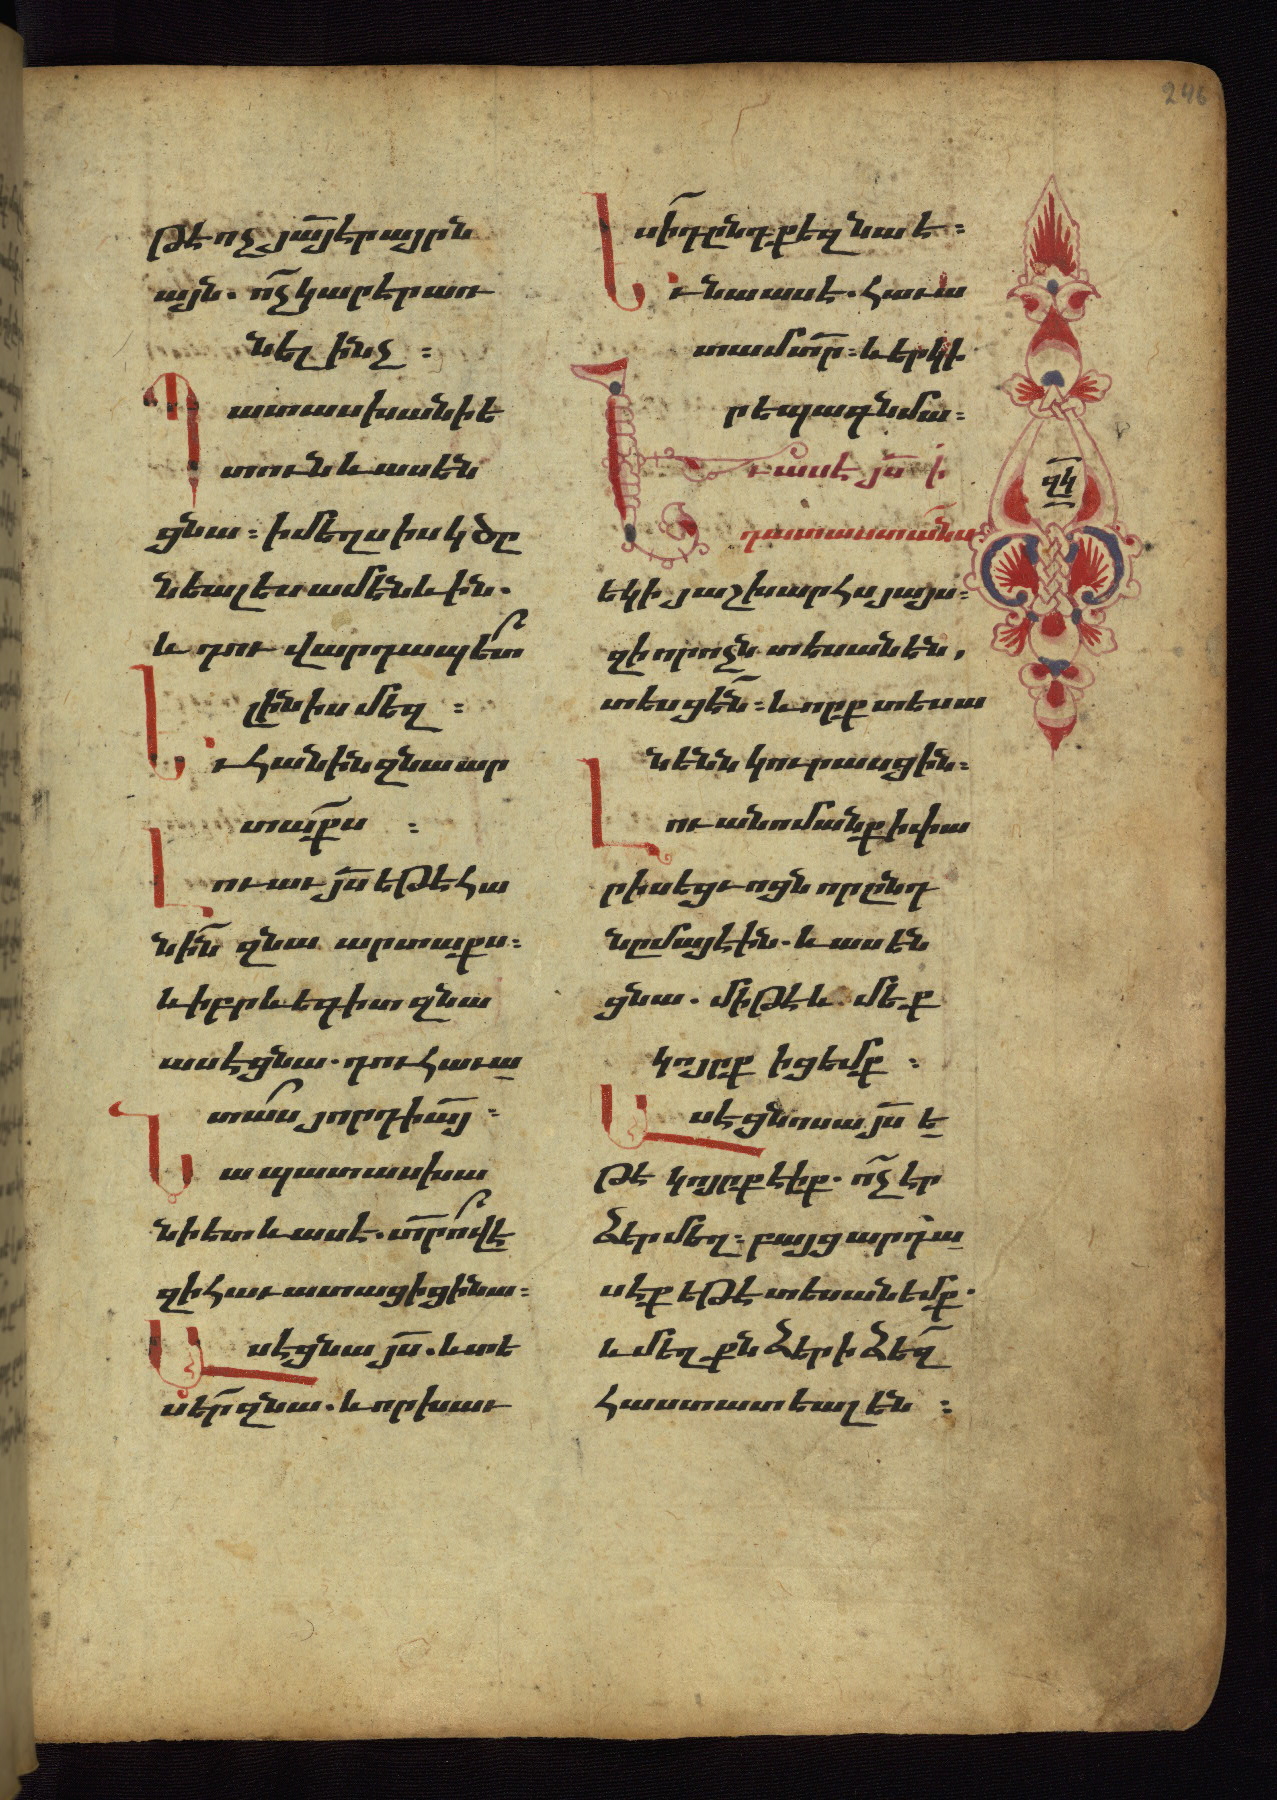 թէ ոչ յա՟յ էր այրն
այն. ոչ կարէր առ
նել ինչ ։
Պատասխանի ե
տուն և ասեն
ցնա ։ ի մեղս իսկ ծը
նեալ ես ամենևին.
և դու վարդապե՞տ
լինիս մեզ ։
Եւ հանին զնա ար
տաքս ։
Լուաւ յս՟ եթե հա
նին զնա արտաքս ։
և իբրև եգիտ զնա
ասէ ցնա. դու հաւա
տա՞ս յորդի ա՟յ ։
Նա պատասխա
նի ետ և ասէ. տր՟ ո՞վ է
զի հաւատացից ի նա ։
Ասէ ցնա յս՟. և տե
սեր զնա. և որ խաւ
սիդ ընդ քեզ նա է ։
Եւ նա ասէ. հաւա
տամ տր՟ ։ և երկի
ր եպագ նմա ։
Եւ ասէ յս՟ ի
դատաստանս
եկի յաշխարհս յայս ։
զի որ ոչն տեսանեն,
տեսցեն ։ և որք տեսա
նենն կուրասցին ։
Լուան ոմանք ի փա
րիսեցւոցն որ ընդ
նըմայ էին. և ասեն
ցնա. միթէ և մեք
կոյրք իցեմք ։
Ասէ ցնոսա յս՟ ե
թէ կոյրք էիք. ոչ էր
ձեր մեղ ։ բայց արդ ա
սէք եթէ տեսանեմք.
և մեղքն ձեր ի ձեզ
հաստատեալ են ։
զկ
246